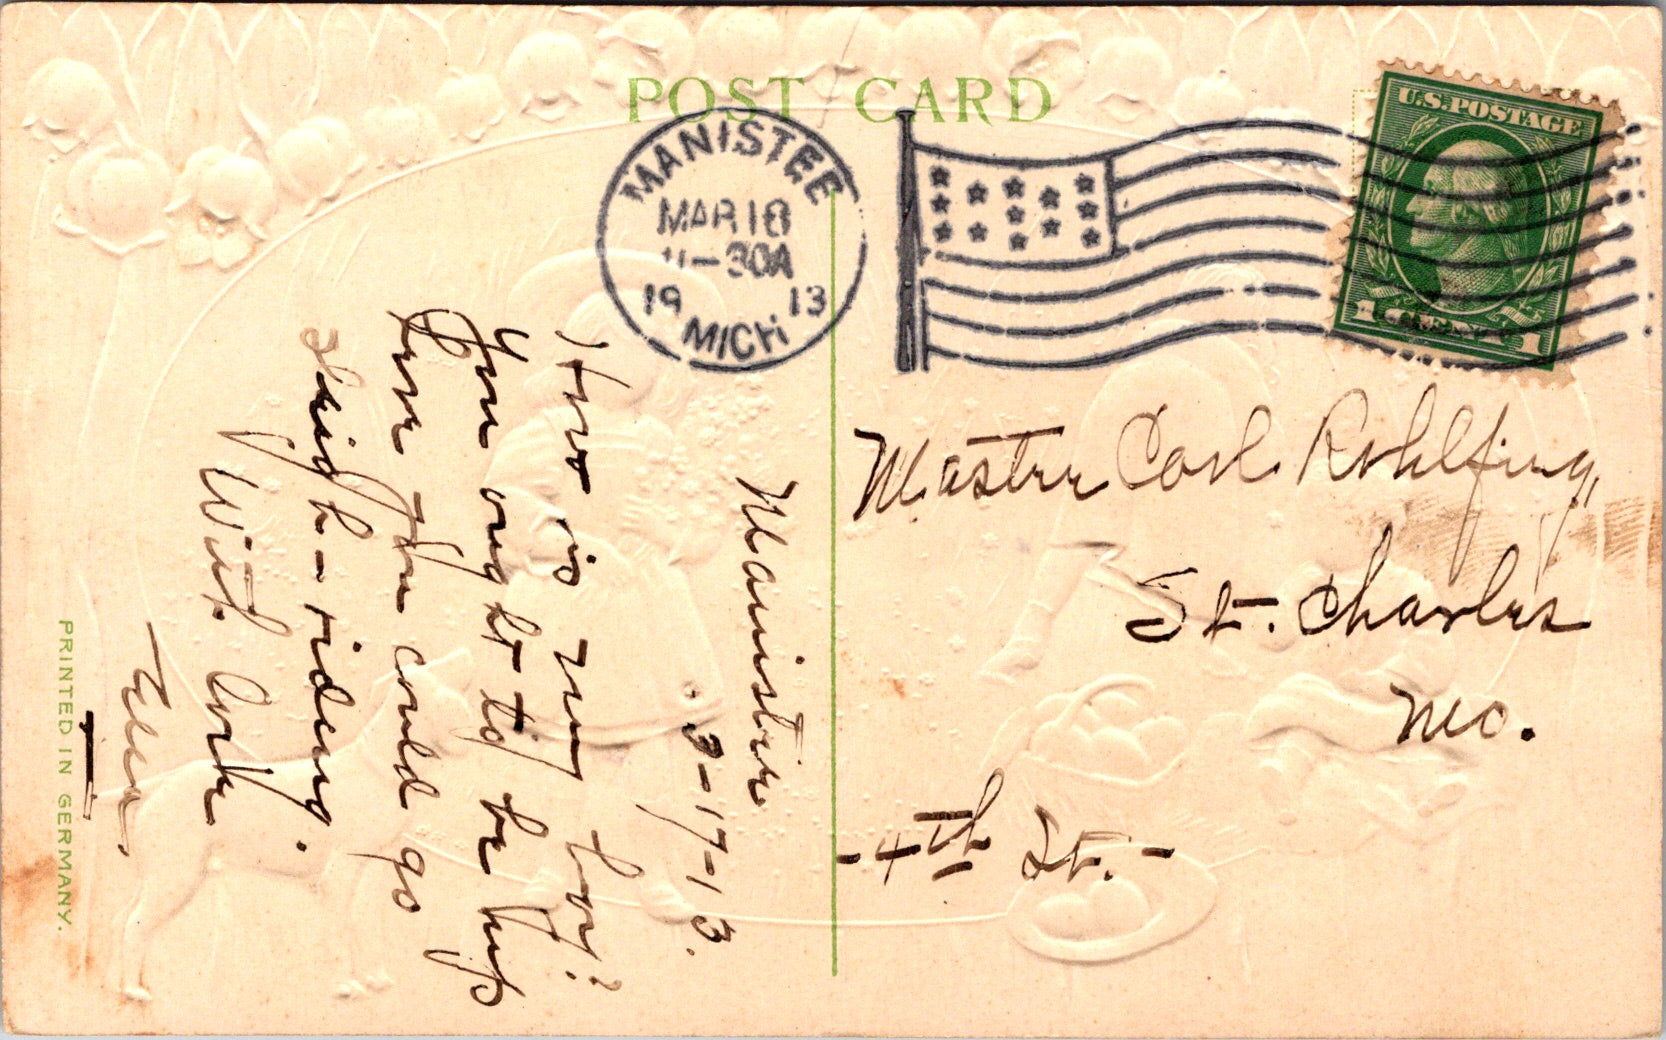 POST CARD
MANISTEE
MAR 18
11-30A
19 13
MICH
U.S. POSTAGE
1 CENT 1
Manistee
3-17-13.
How is my boy?
You ought to be up
here you could go
sleigh-riding.
With love
Ella.
Master Carl Rohlfing,
St. Charles
Mo.
-4th St.-
PRINTED IN GERMANY.